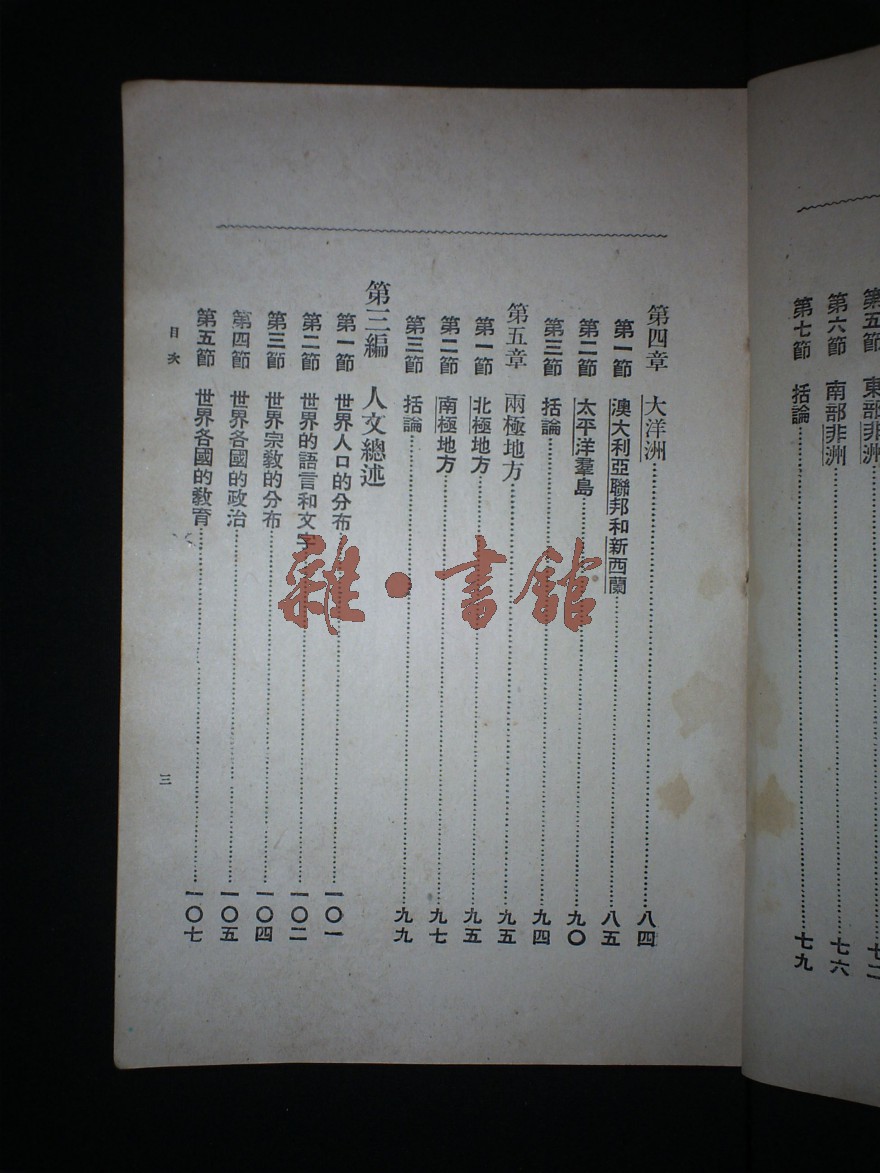 第五節　東部非洲
第六節　南部非洲……七六
第七節　括論……七九
第四章　大洋洲……八四
第一節　澳大利亞聯邦和新西蘭……八五
第二節　太平洋羣島……九〇
第三節　括論……九四
第五章　兩極地方……九五
第一節　北極地方……九五
第二節　南極地方……九七
第三節　括論……九九
第三編　人文總述
第一節　世界人口的分布……一〇一
第二節　世界的語言和文字……一〇二
第三節　世界宗教的分布……一〇四
第四節　世界各國的政治……一〇五
第五節　世界各國的教育……一〇七
目次
三
雜·書館